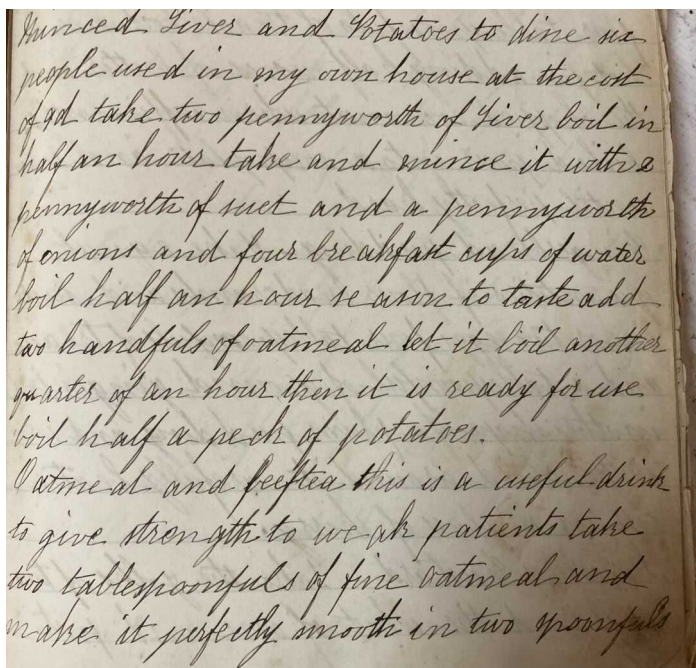 Minced Liver and Potatoes to dine six
people used in my own house at the cost
of 9d take two pennyworth of Liver boil in
half an hour take and mince it with a
pennyworth of suet and a pennyworth
of onions and four breakfast cups of water
boil half an hour season to taste add
two handfuls of oatmeal let it boil another
quarter of an hour then it is ready for use
boil half a peck of potatoes.
Oatmeal and beeftea this is a useful drink
to give strength to weak patients take
two tablespoonfuls of fine oatmeal and
make it perfectly smooth in two spoonfuls